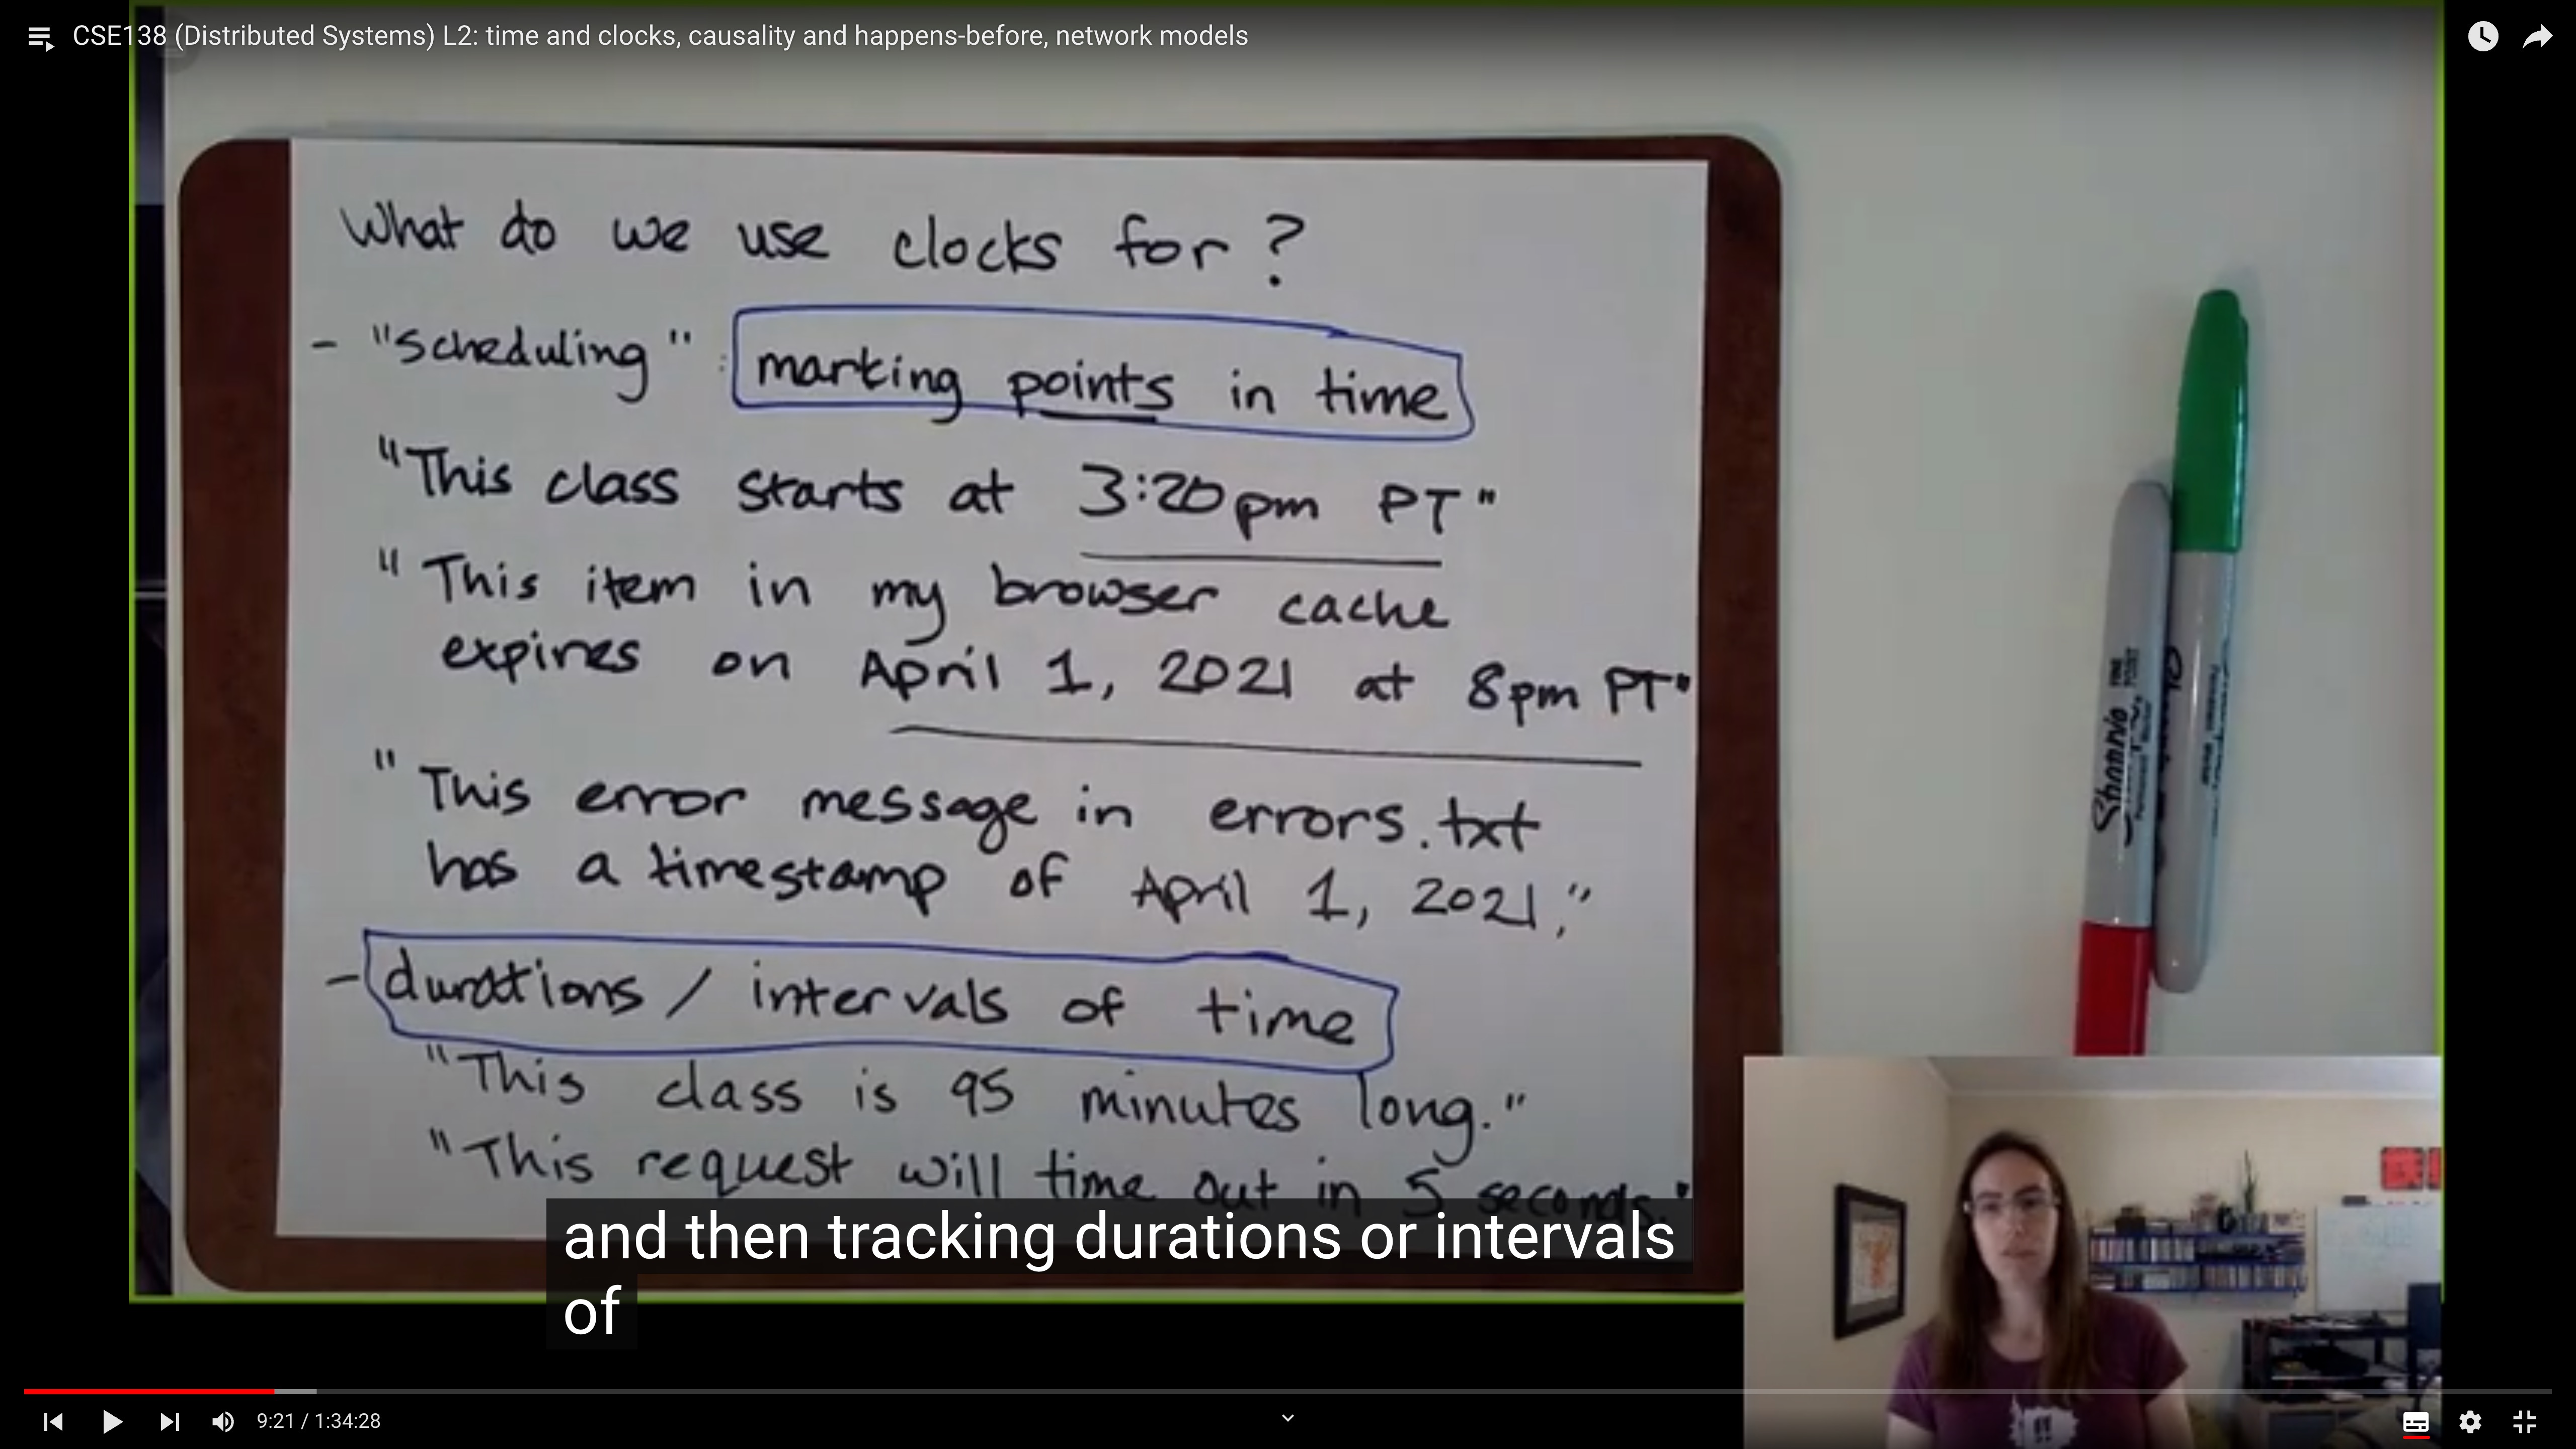 CSE138 (Distributed Systems) L2: time and clocks, causality and happens-before, network models
What do we use clocks for?
- "scheduling" : marking points in time
"This class starts at 3:20pm PT"
"This item in my browser cache
expires on April 1, 2021 at 8pm PT"
"This error message in errors.txt
has a timestamp of April 1, 2021."
- durations / intervals of time
"This class is 95 minutes long."
"This request will time out in 5 seconds."
Sharpie
and then tracking durations or intervals
of
9:21 / 1:34:28